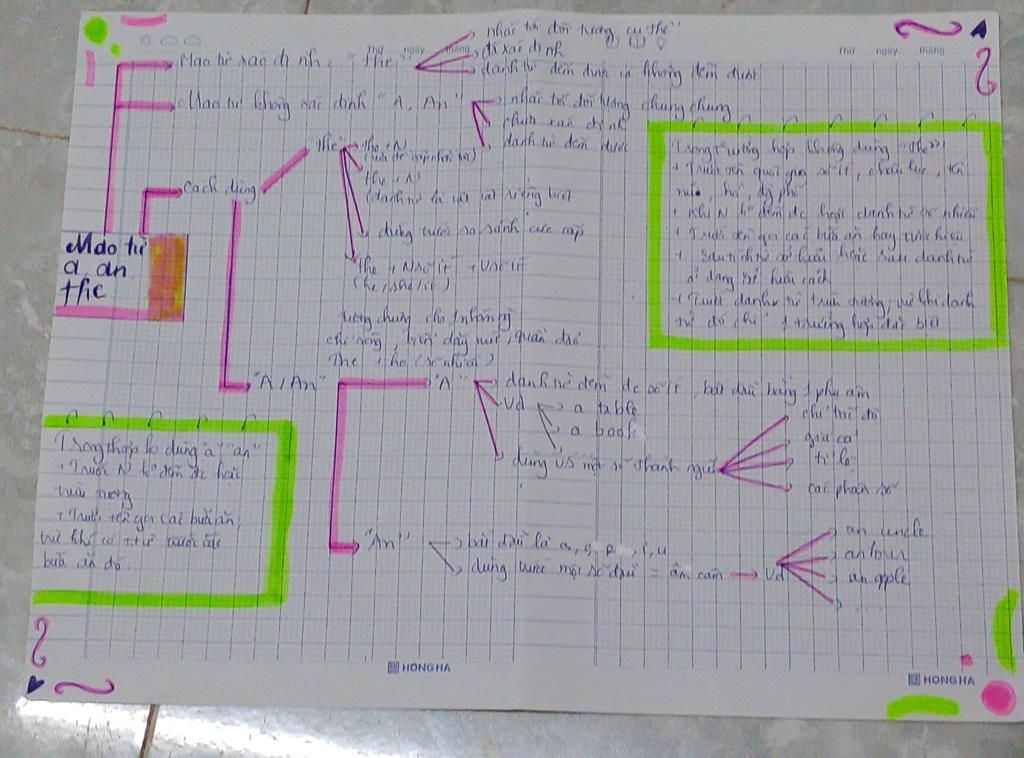 nhắc tới đối tượng cụ thể
Thứ ngày tháng
Mạo từ xác định "The"
đã xác định
danh từ đếm được và không đếm được
Thứ ngày tháng
Mạo từ không xác định "A, An"
nhắc tới đối tượng chung chung
chưa xác định
danh từ đếm được
Cách dùng
"The"
The + N
The + N
(danh từ là vật riêng biệt
dùng trước so sánh cực cấp
The + N số ít + V số ít
(he/she/it)
tượng chung cho 1 nhóm
chỉ sông, biển, dãy núi, quần đảo
The + họ (số nhiều)
Mạo từ
a, an
the
Trong trường hợp không dùng "the"
+ Trước tên quốc gia số ít, châu lục, tên
núi, hồ, đg phố
+ Khi N ko đếm đc hoặc danh từ số nhiều
+ Trước tên gọi các bữa ăn hay tước hiệu
+ Sau tính từ sở hữu hoặc sau danh từ
ở dạng sở hữu cách
+ Trước danh từ trừu tượng, trừ khi danh
từ đó chỉ 1 trường hợp đặc biệt
"A / An"
"A"
danh từ đếm đc số ít, bắt đầu bằng 1 phụ âm
Vd
a table
a book
dùng vs một số thành ngữ
chỉ tốc độ
giá cả
tỉ lệ
các phân số
Trong thợp ko dùng "a" "an"
+ Trước N ko đếm đc hoặc
trừu tượng
+ Trước tên gọi các bữa ăn,
trừ khi có ttừ trước các
bữa ăn đó
"An"
bắt đầu là a, e, i, u
dùng trước một số đầu = âm câm
Vd
an uncle
an hour
an apple
...
HONG HA
HONG HA